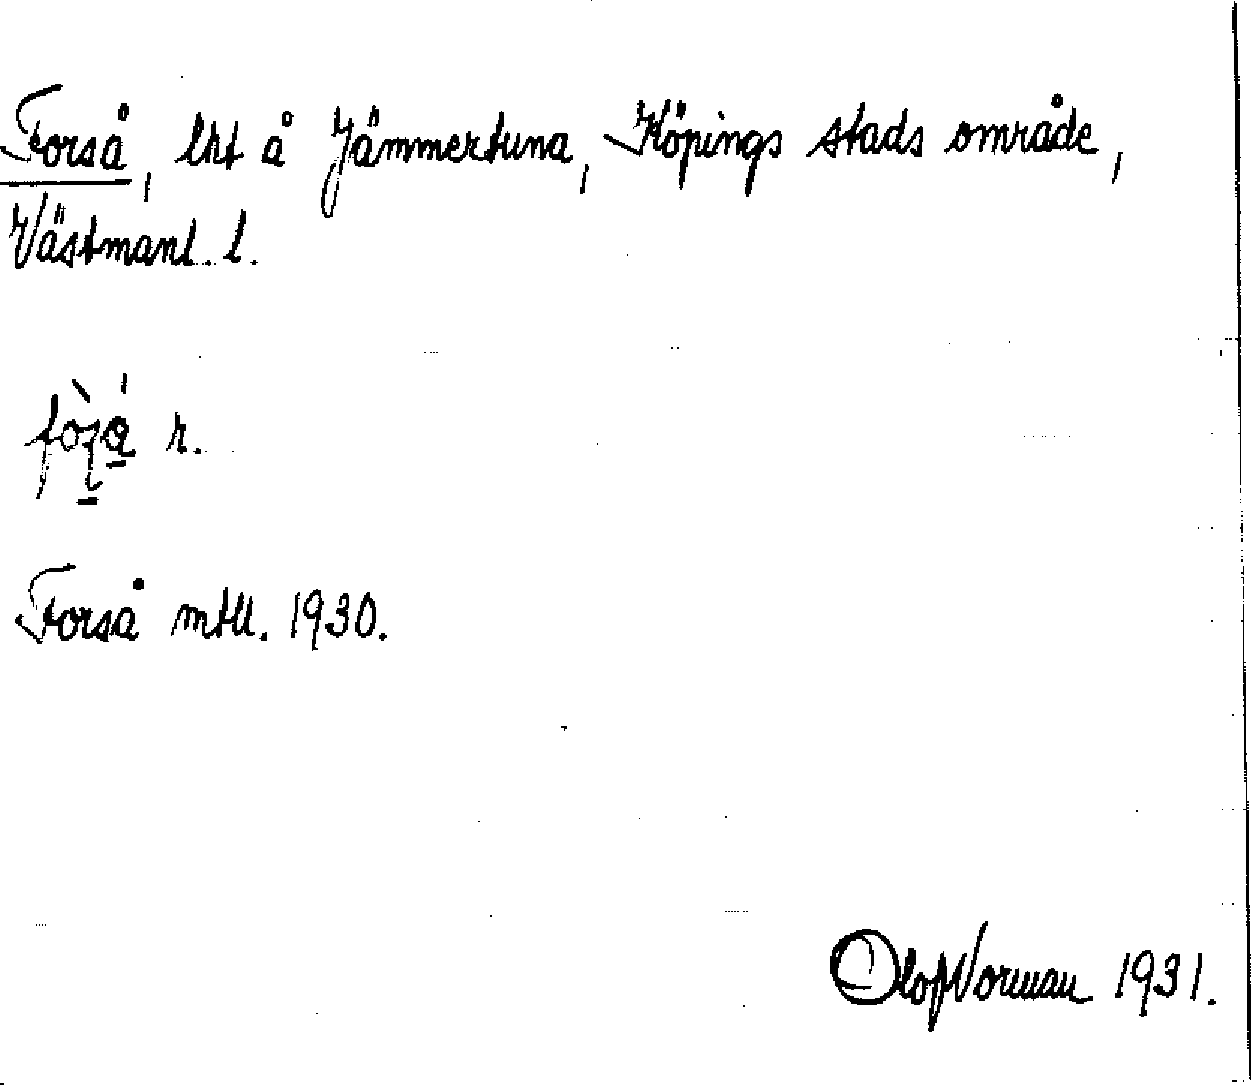 Forså, lht å Jämmertuna, Köpings stads område,
Västmanl. l.
r.
Forså mtll. 1930.
Olof Vorman 1931.